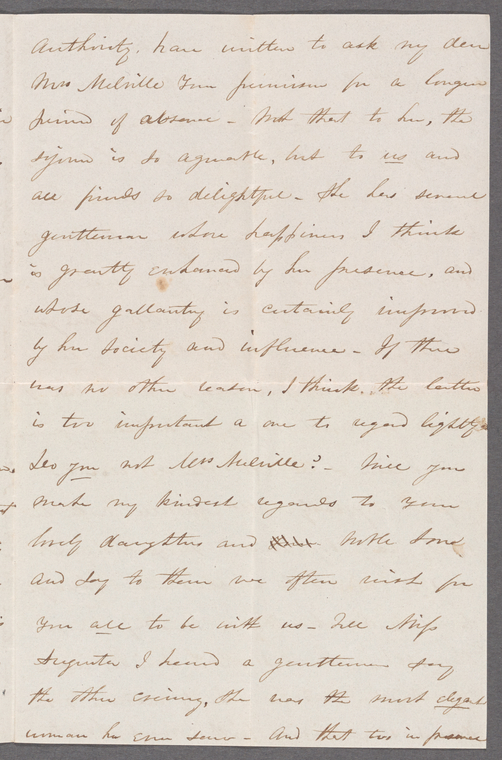 Authority. have written to ask my dear
Mrs Melville your permission for a longer
period of absence - Not that to her, the
sojourn is so agreeable, but to us and
all friends so delightful - She has several
gentlemen whose happiness I think
is greatly enhanced by her presence, and
whose gallantry is certainly improved
by her society and influence - If there
was no other reason, I think the latter
is too important a one to regard lightly
Do you not Mrs Melville? - Will you
make my kindest regards to your
lovely daughters and noble Sons
and say to them we often wish for
you all to be with us - Tell Miss
Augusta I heard a gentleman say
the other evening, she was the most elegant
woman he ever saw - And that too in presence